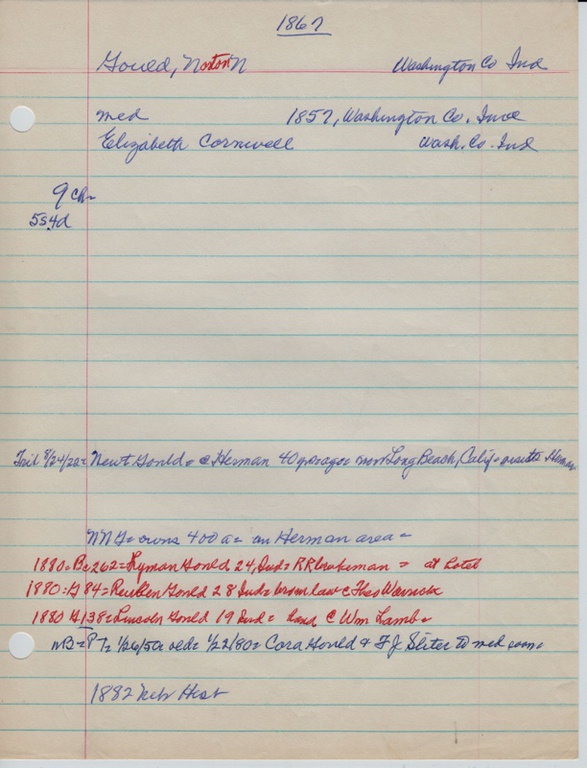 1867
Gould, Norton N Washington Co Ind
med 1857, Washington Co. Ind
Elizabeth Cornwell Wash. Co. Ind
9 ch-
5s.4d
8/24/22= Newt Gould= @ Herman 40 yrs ago= now Long Beach, Calif= visits Herman
NNG= owns 400 a= in Herman area=
1880=Bc262=Lyman Gould 24, Ind= RR brakeman = at hotel
1880=G84=Reuben Gould 28 Ind= bro in law c Theo Warrick
1880 G138=Lincoln Gould 19 Ind= land c Wm Lamb=
1/22/80= Cora Gould & F J Slater to med soon=
1882 Neb Hist